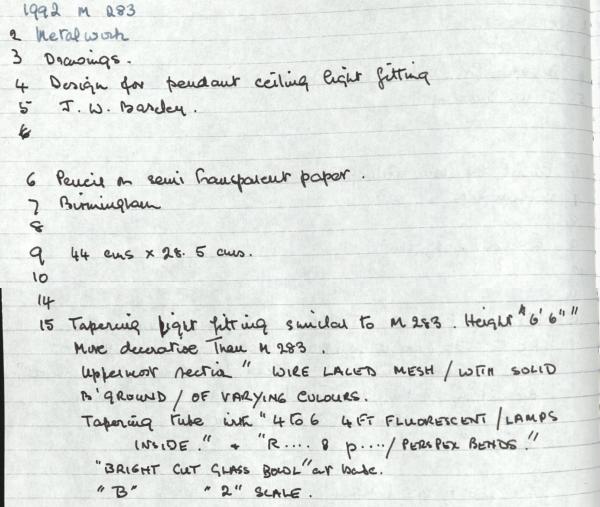 1992 M 283
2 Metalwork
3 Drawings.
4 Design for pendant ceiling light fitting
5 J. W. Barclay.
6
6 Pencil on semi transparent paper.
7 Birmingham
8
9 44 cms x 28.5 cms.
10
14
15 Tapering light fitting similar to M 283. Height "6' 6""
More decorative than M 283.
Uppermost section " WIRE LACED MESH / WITH SOLID
B'GROUND / OF VARYING COLOURS.
Tapering tube with "4 to 6 4 FT FLUORESCENT / LAMPS
INSIDE." + "R.... 8 p..../ PERSPEX BENDS."
"BRIGHT CUT GLASS BOWL" at base.
"B" "2" SCALE.